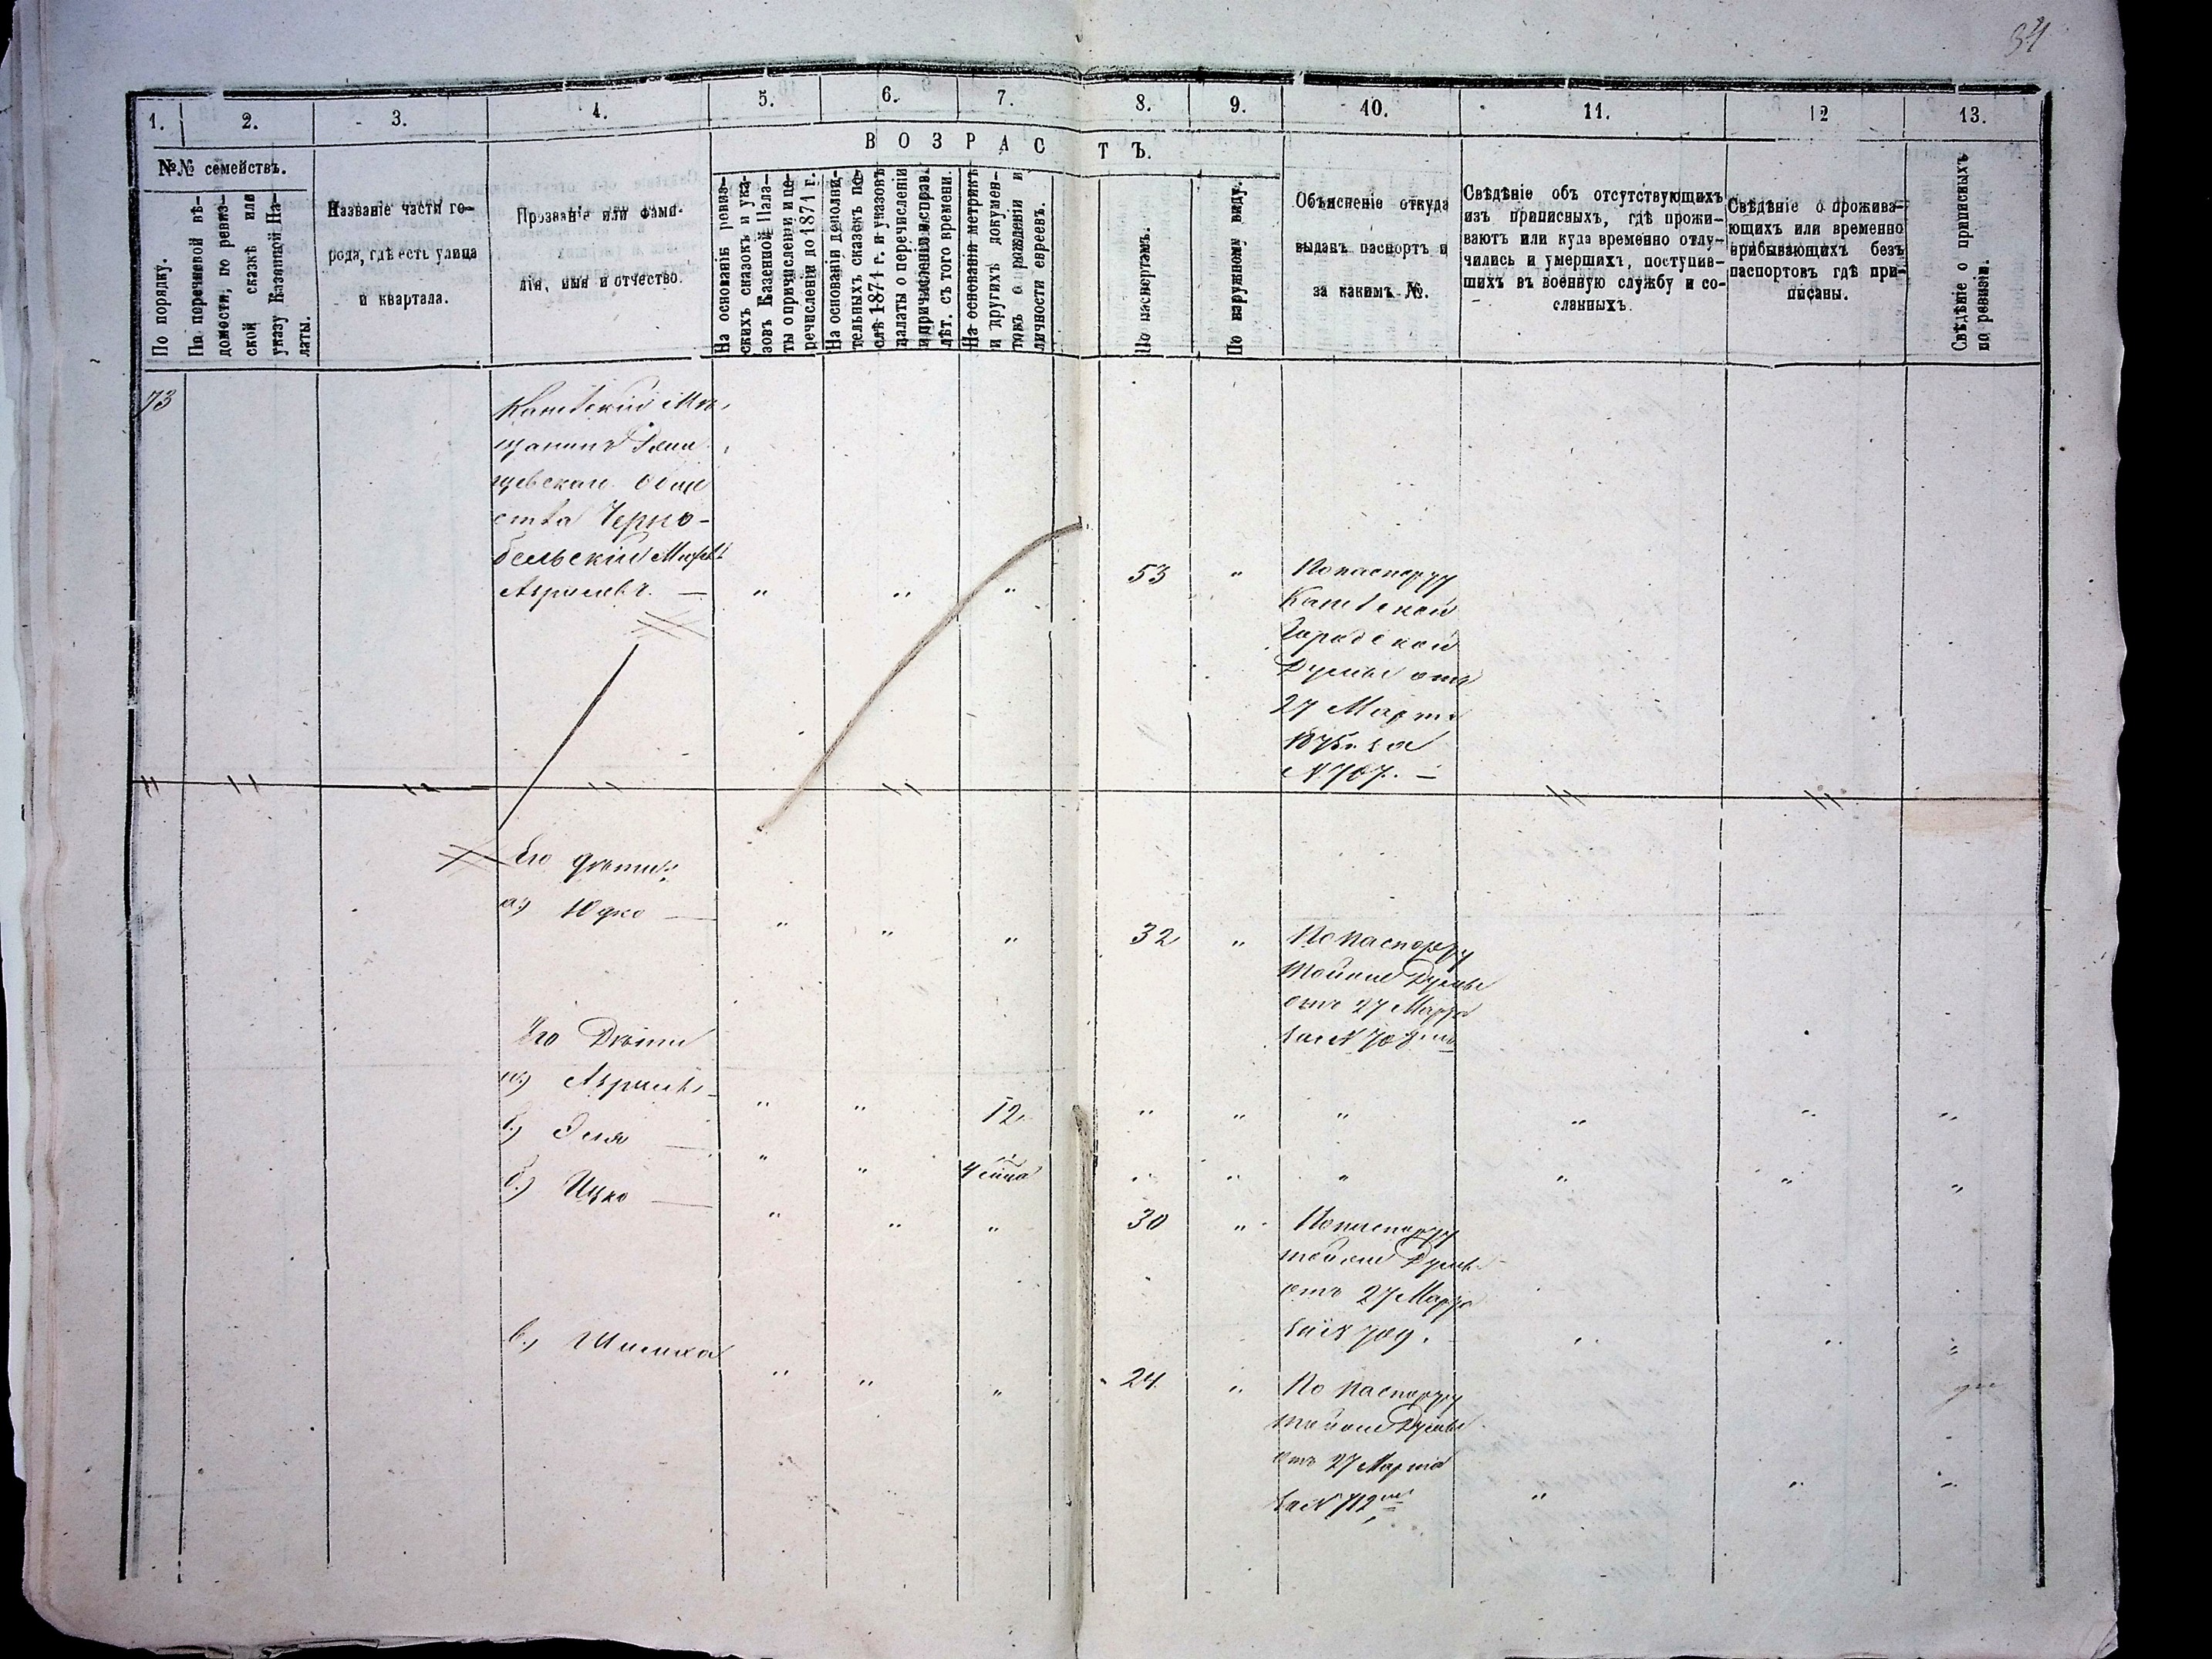 34
1. 2. 3. 4. 5. 6. 7. 8. 9. 10. 11. 12 13.
ВОЗРАСТЪ.
№№ семействъ.
По порядку.
По перечневой вѣ-
домости, по ревиз-
ской сказкѣ или
указу Казенной Па-
латы.
Названіе части го-
рода, гдѣ есть улица
и квартала.
Прозваніе или фами-
лія, имя и отчество.
На основаніи ревиз-
скихъ сказокъ и ука-
зовъ Казенной Пала-
ты о причисленіи и пе-
речисленіи до 1871 г.
На основаніи дополни-
тельныхъ сказокъ по-
слѣ 1871 г. и указовъ
палаты о перечисленіи
и причисленіи и исправ.
лѣт. съ того времени.
На основаніи метрикъ
и другихъ докумен-
товъ о рожденіи и
личности евреевъ.
По паспортамъ.
По наружному виду.
Объясненіе откуда
выданъ паспортъ и
за какимъ №.
Свѣдѣніе объ отсутствующихъ
изъ приписныхъ, гдѣ прожи-
ваютъ или куда временно отлу-
чились и умершихъ, поступив-
шихъ въ военную службу и со-
сланныхъ.
Свѣдѣніе о прожива-
ющихъ или временно
прибывающихъ безъ
паспортовъ гдѣ при-
писаны.
Свѣдѣніе о приписныхъ
по ревизіи.
73
щанинъ
ства Черно-
бельскій
" " " 53 " По паспорту
Городской
Думы отъ
27 Марта
1875г. за
№ 707. —
Его дѣти:
а.) Юдко — " " " 32 " По паспорту
тойже Думы
отъ 27 Марта
за № 708
Его Дѣти
" " 12 " " " " " "
" " 4 " " " " "
б.) Ицко — " " " 30 " По паспорту
тойже Думы
отъ 27 Марта
за № 709. " " "
в.) " " " 24 " По паспорту
тойже Думы
отъ 27 Марта
за № 712 " " "